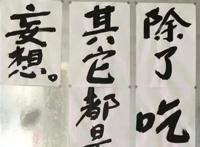 除了吃
其它都是
妄想。